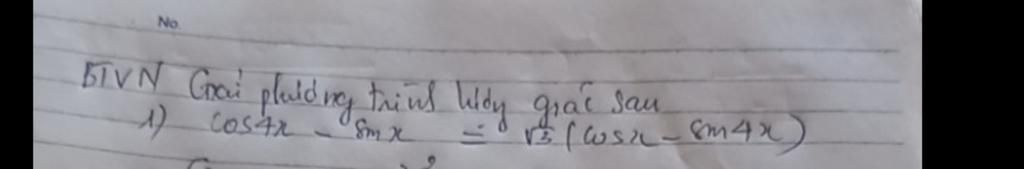 No
BTVN Giải phương trình lượng giác sau
1) cos4x - sinx = √3 (cosx - sin4x)